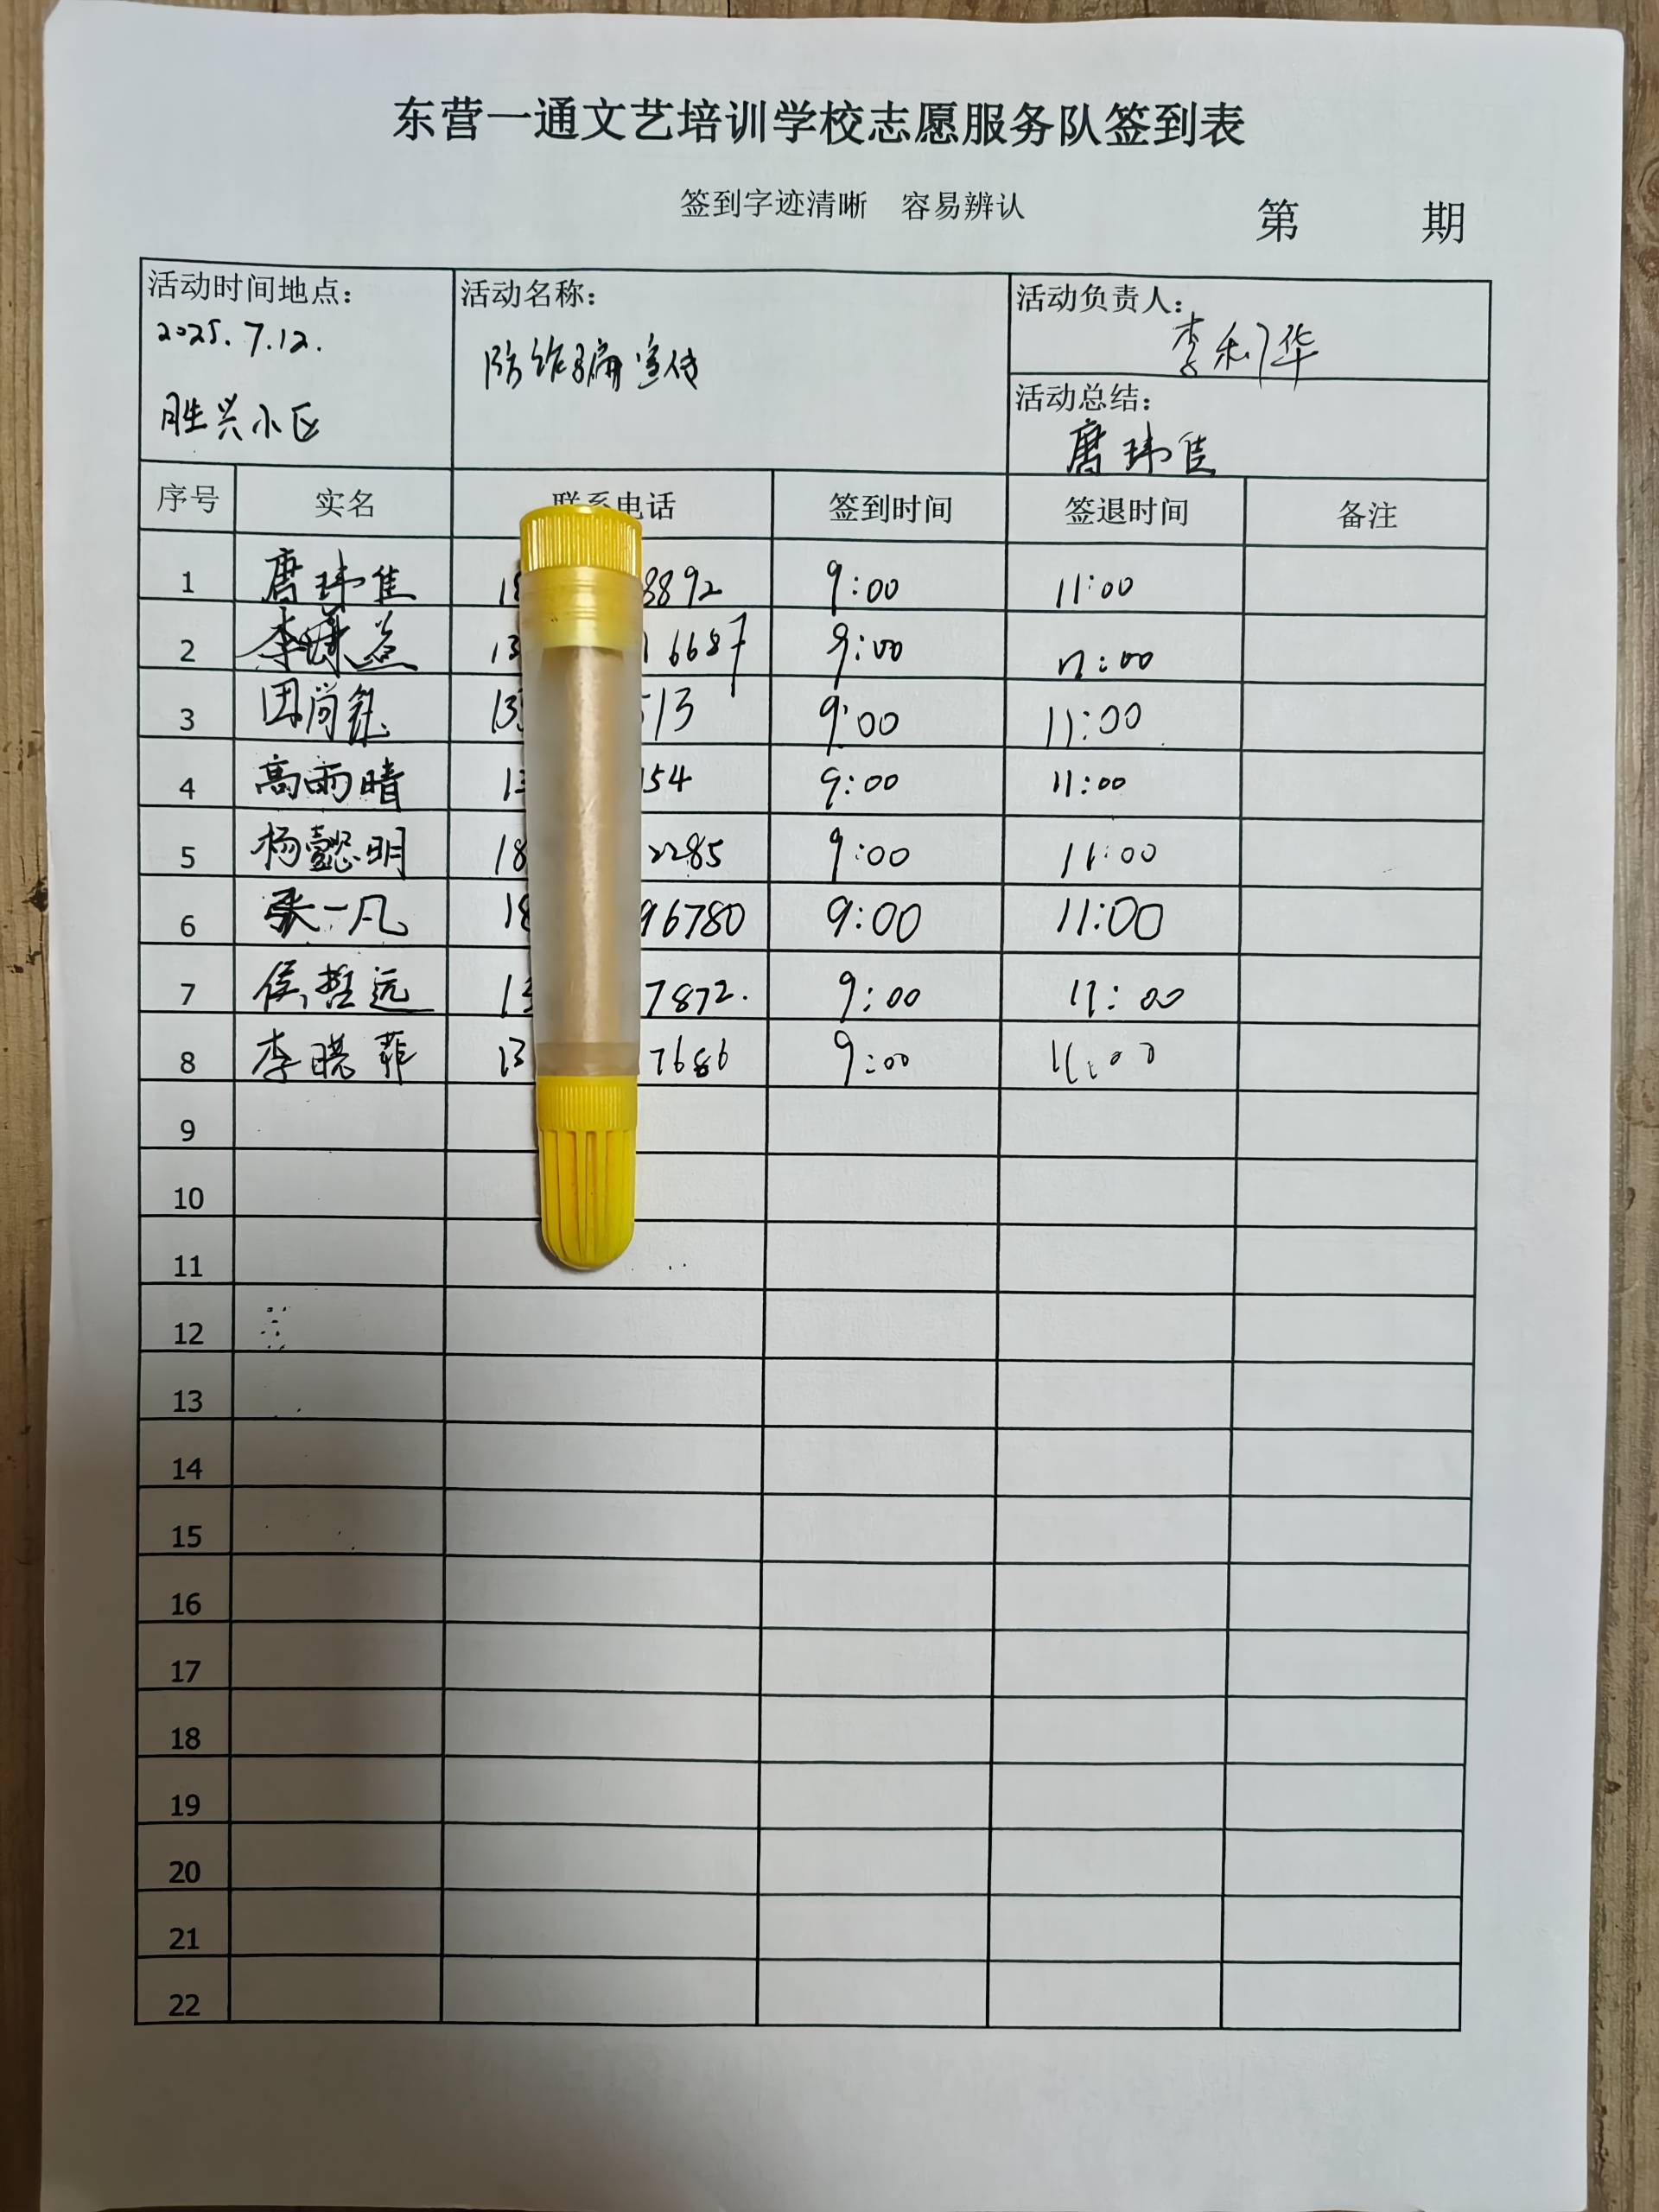 东营一通文艺培训学校志愿服务队签到表
签到字迹清晰 容易辨认
第 期
活动时间地点：
2025.7.12.
胜兴小区
活动名称：
防诈骗宣传
活动负责人：
李利华
活动总结：
唐玮佳
序号 实名 联系电话 签到时间 签退时间 备注
1 唐玮佳 18 8892 9:00 11:00
2 李 13 16687 9:00 11:00
3 尚 13 513 9:00 11:00
4 高雨晴 13 154 9:00 11:00
5 杨懿明 18 2285 9:00 11:00
6 张一凡 18 96780 9:00 11:00
7 侯哲远 13 7872. 9:00 11:00
8 李晓菲 13 7686 9:00 11:00
9
10
11
12
13
14
15
16
17
18
19
20
21
22